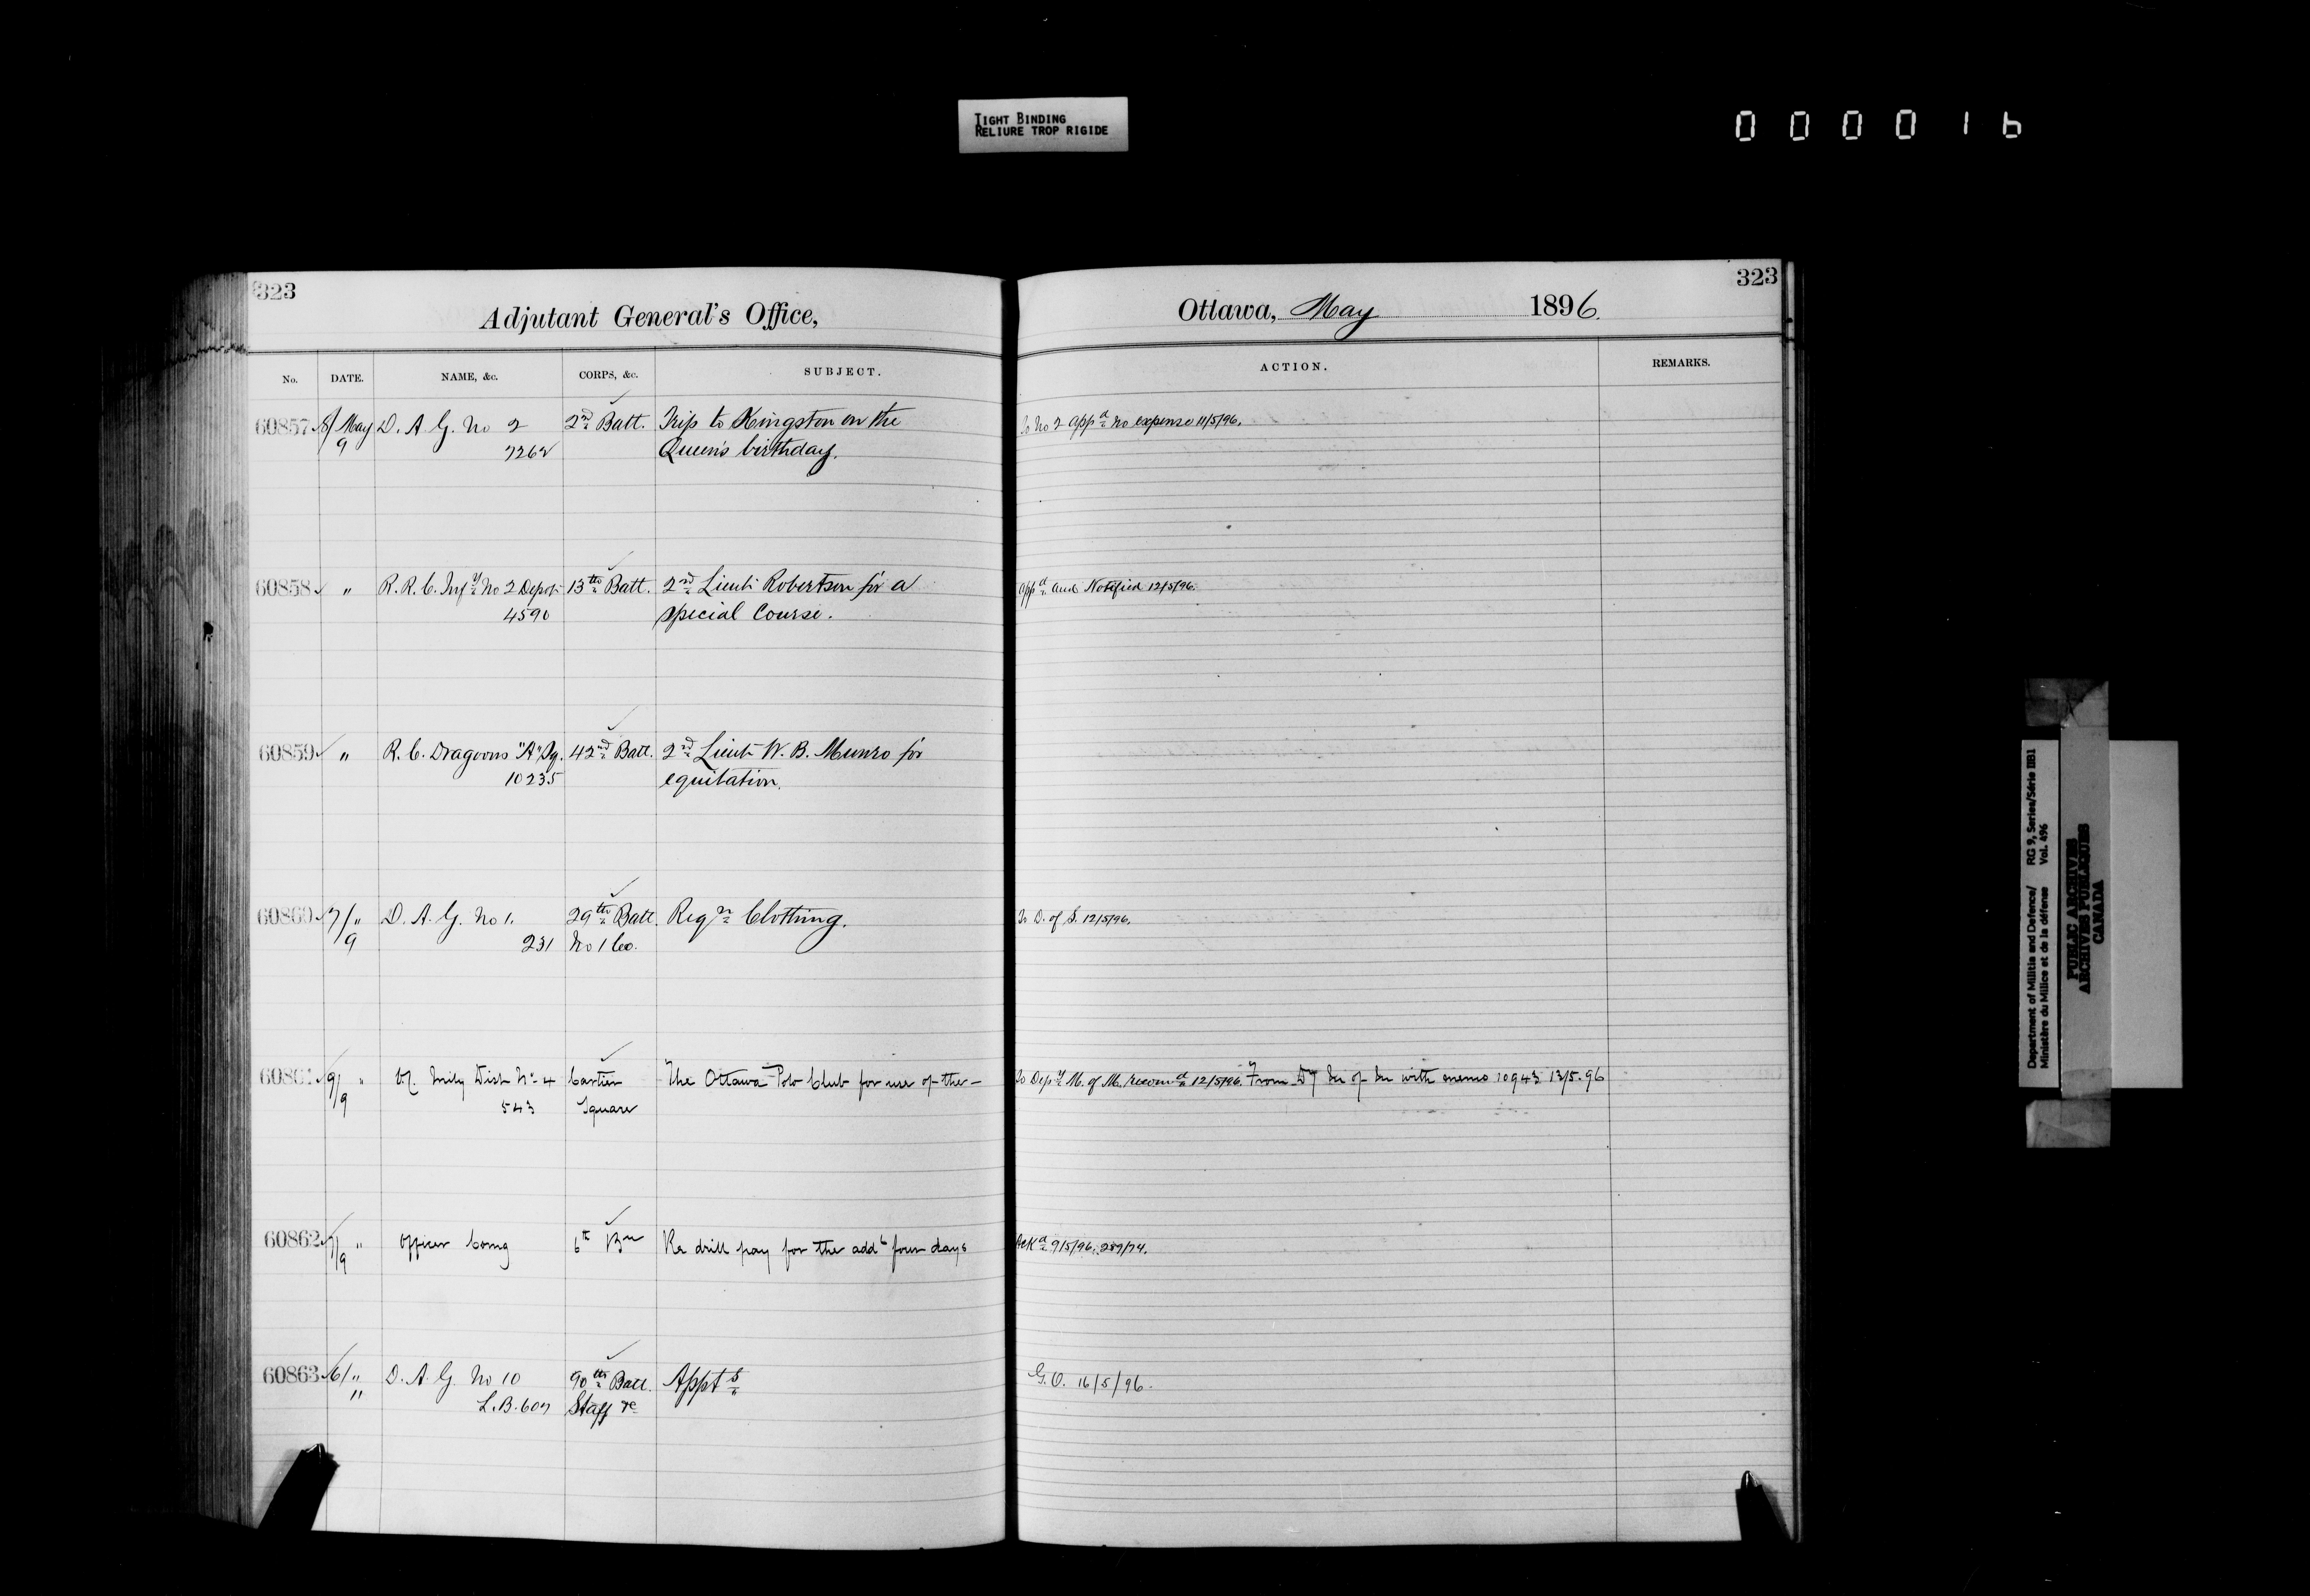 TIGHT BINDING
RELIURE TROP RIGIDE
000016
323
Adjutant General's Office,
No. DATE. NAME, &c. CORPS, &c. SUBJECT.
60857 8/ May D. A. G. No 2 2nd Batt. Trip to Kingston on the
9 7262 Queen's birthday.
60858 " R. R. C. Infy No 2 Depot 13th Batt. 2nd Lieut Robertson for a
4590 special Course.
60859 " R. C. Dragoons "A" Sq. 42nd Batt. 2nd Lieut W. B. Munro for
10235 equitation.
60860 7/ " D. A. G. No 1. 29th Batt. Reqn Clothing.
9 231 No 1 Co.
60861 9/ " Mily Dist No 4 Cartier The Ottawa Polo Club for use of the -
9 543 Square
60862 7/ " Officer Comg 6th Bn Re drill pay for the addl four days
9
60863 6/ " D. A. G. No 10 90th Batt. Appts
" L.B. 607 Staff re
323
Ottawa, May 1896.
ACTION. REMARKS.
To No 2 appd no expense 11/5/96.
Appd. and Notified 12/5/96.
To D. of S. 12/5/96.
To Depy M. of M. recomd 12/5/96. From Dy M of M with memo 10943 13/5.96
Ackd 9/5/96. 259/74.
G.O. 16/5/96.
Department of Militia and Defence/ RG 9, Series/Série IIB1
Ministère du Milice et de la défense Vol. 496
PUBLIC ARCHIVES
ARCHIVES PUBLIQUES
CANADA